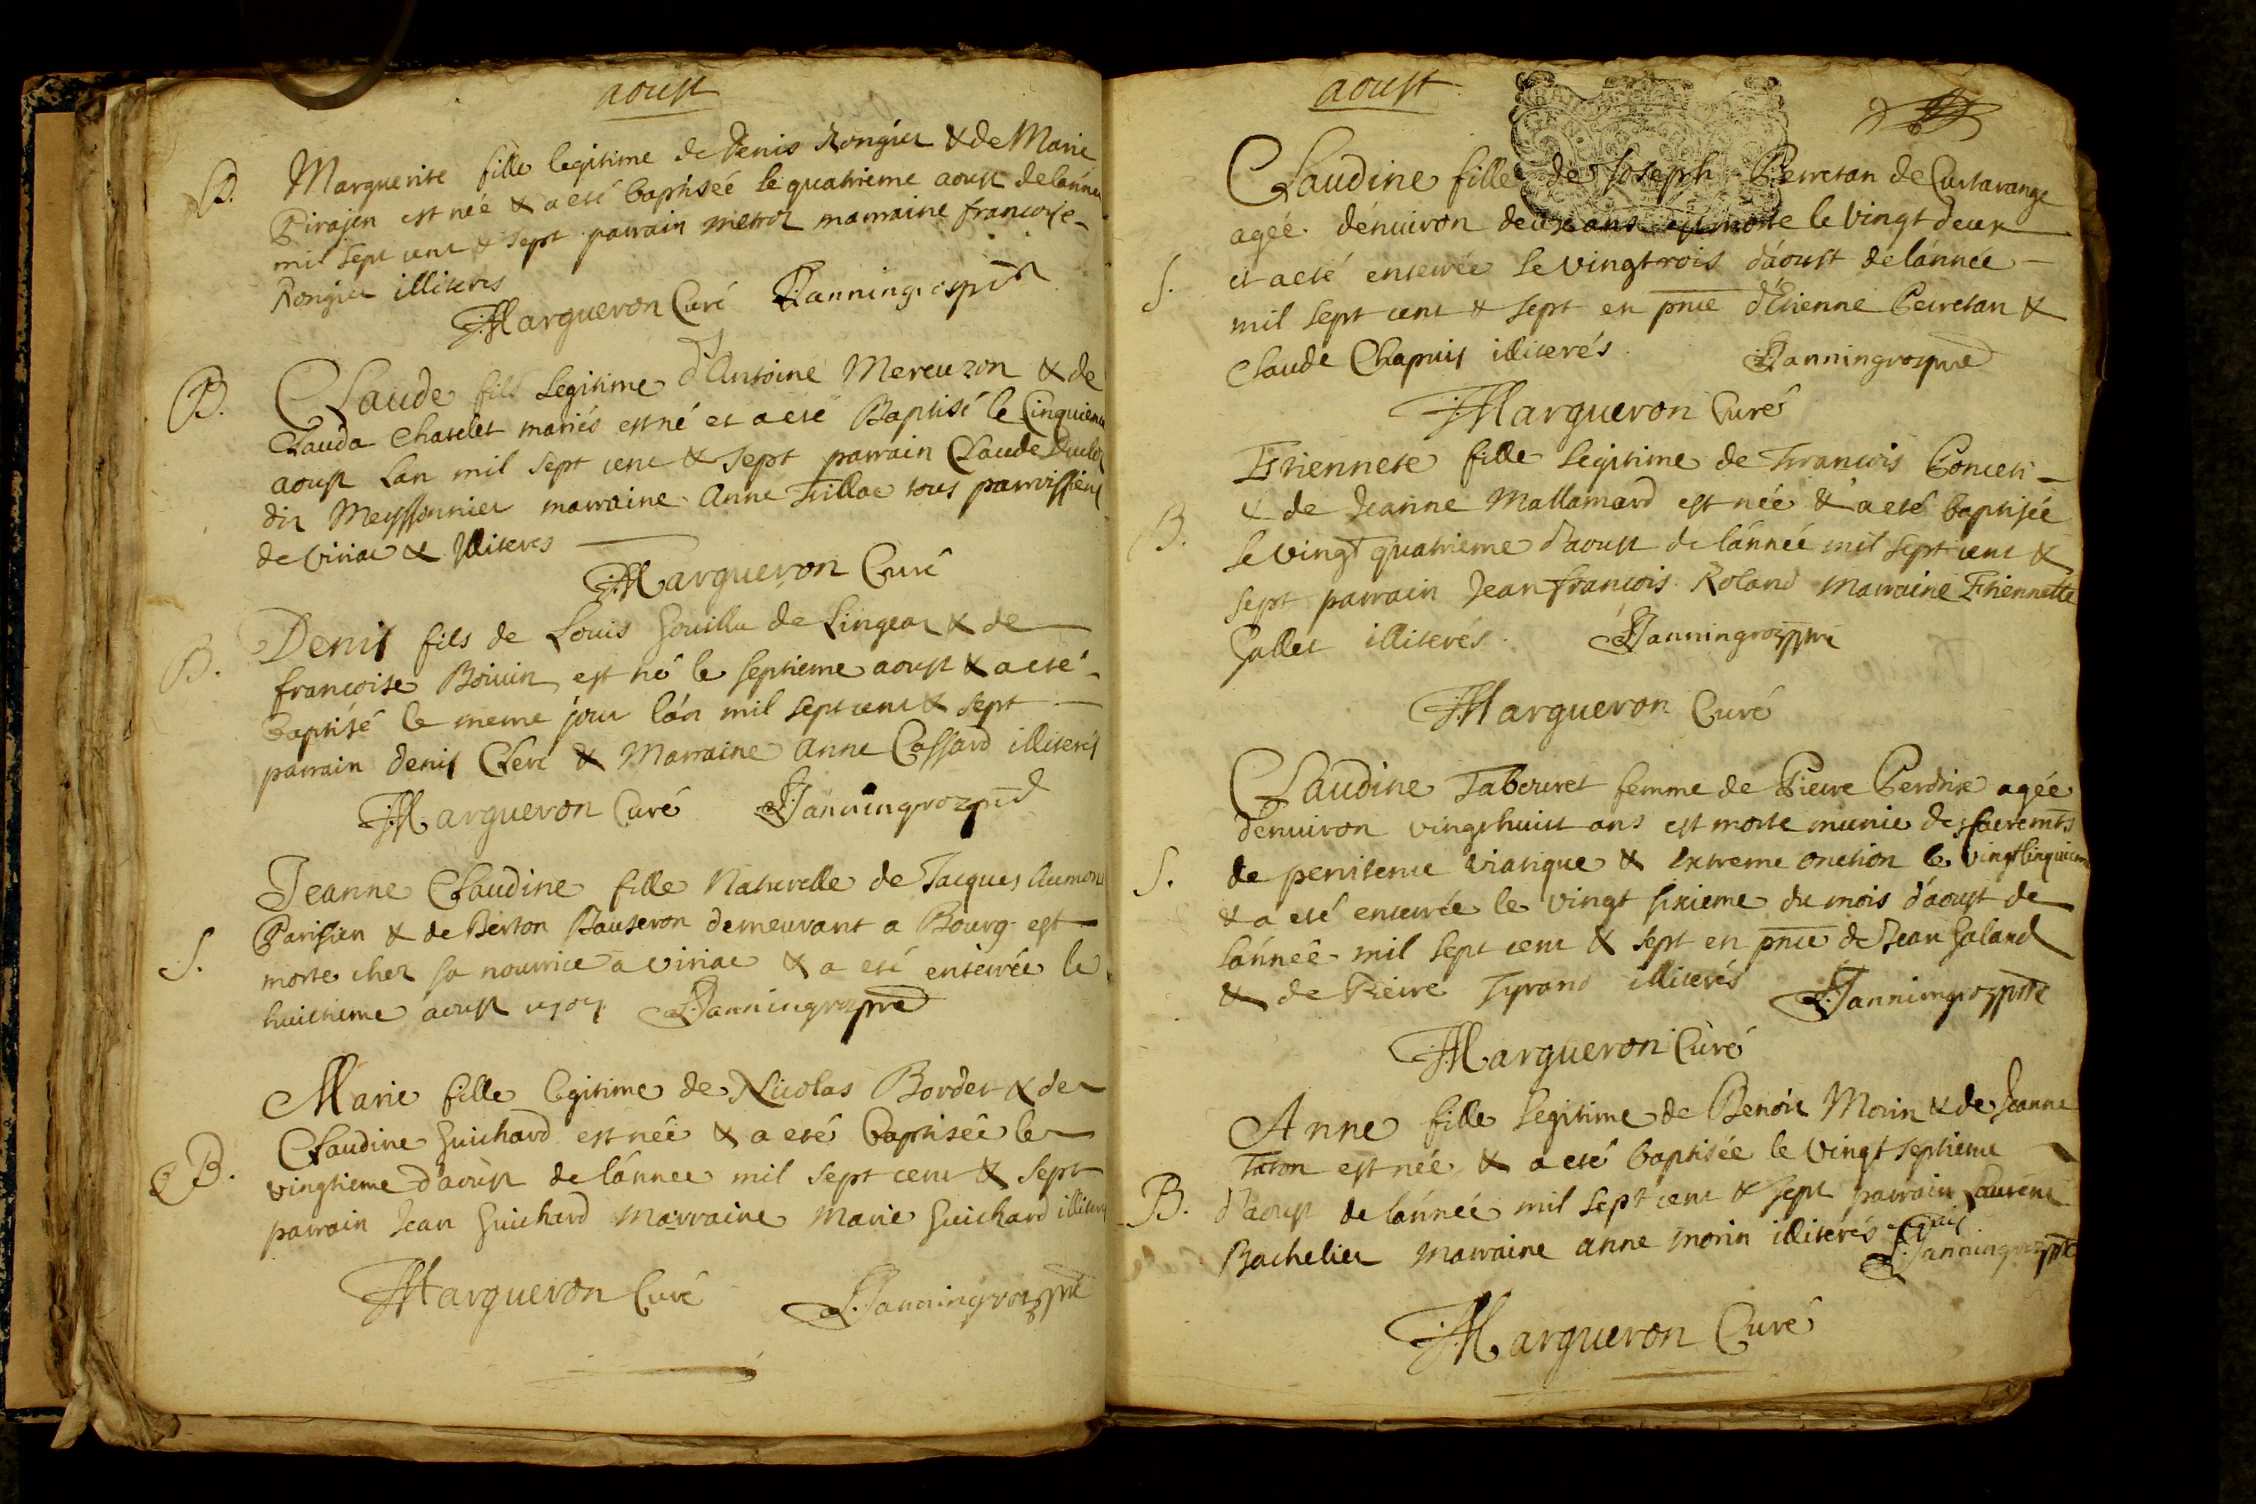 aoust
B. Marguerite fille legitime de Denis Rongier & de Marie
Pirajen est née & a eté baptiséé le quatrieme aoust de lánneé
mil sept cent & sept parrain marraine francoise
Rongier illiteres
Margueron Curé Janningros
B. CLaude fils Legitime d'Antoine Mercuzon & de
Clauda Chatelet mariés est né et a eté Baptisé le Cinquieme
aoust Lan mil sept cent & sept parrain Claude
dit Meyssonnier marraine Anne Trillae tous parroissiens
de Viriac & Illiteres
Margueron Curé
B. Denis fils de Louis Gouillu de Lingeat & de
francoise Boivin est né le septieme aoust & a eté
baptisé le meme jour lán mil sept cent & sept
parrain denis Clerc & Marraine Anne Cassard illiterés
Margueron Curé Janningros
Jeanne Claudine fille Naturelle de Jacques Aumont
Parisien & de Berton Bauseron demeurant a Bourg est
S. morte chez sa nourrice a Viriac & a eté enterrée le
huictieme aoust 1707. Janningros pre
Marie fille legitime de Nicolas Bordet & de
B. Claudine Guichard est née & a eté baptisée le
vingtieme d'aoust de lánnee mil sept cent & sept
parrain Jean Guichard Marraine Marie Guichard illiterés
Margueron Curé Janningros pre
aoust
CLaudine fille de Joseph Perretan de Curtarange
agéé dénuiron deux ans est morte le Vingt deux
S. et a eté enterrée le vingt trois d'áoust de lánnée
mil sept cent & sept en pnce d'Etienne Perretan &
Claude Chapuis illiterés. Janningros pre
Margueron Curé
Etiennete fille legitime de Francois Poncet
& de Jeanne Mallamard est née & a eté baptisée
B. le vingt quatrieme d'aoust de lánneé mil sept cent &
sept parrain Jean francois Roland Marraine Etiennette
Gallet illiterés. Janningros pre
Margueron Curé
CLaudine Tabouret femme de Pierre Perdrix agée
dénuiron vingt huict ans est morte munie des sacremts
S. de penitence Viatique & extreme onction le Vingt Cinquieme
& a eté enterrée le Vingt sixieme du mois d'áoust de
lánneé mil sept cent & sept en pnce de Jean Galand
& de Pierre Tyrand illiterés Janningros pre
Margueron Curé
Anne fille Legitime de Benoit Morin & de Jeanne
Taton est née & a eté baptisée le Vingt septieme
B. d'aoust de lánneé mil sept cent & sept parrain Laurent
Bachelier Marraine anne morin illiterés Janningros pre
Margueron Curé